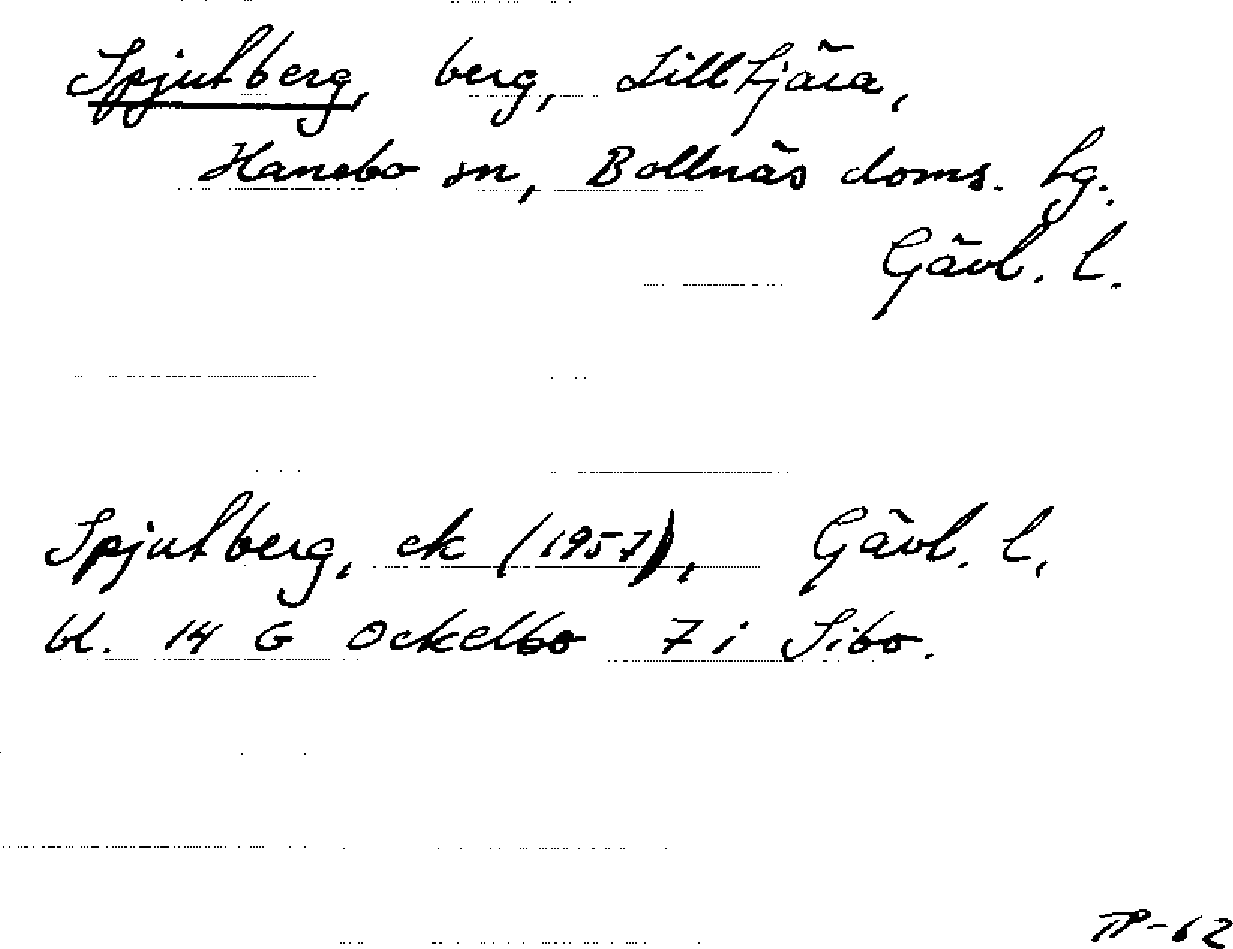 Spjutberg, berg, Lilltjära,
Hanebo sn, Bollnäs doms. hg.
Gävl. l.
Spjutberg, ek (1957), Gävl. l,
bl. 14 G Ockelbo 7 i Sibo.
TP-62